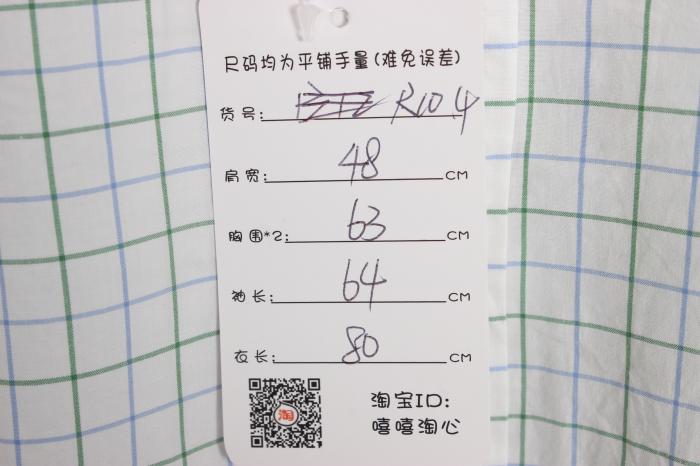 尺码均为平铺手量(难免误差)
货号: R104
肩宽: 48 CM
胸围*2: 63 CM
袖长: 64 CM
衣长: 80 CM
淘
淘宝ID:
嘻嘻淘心